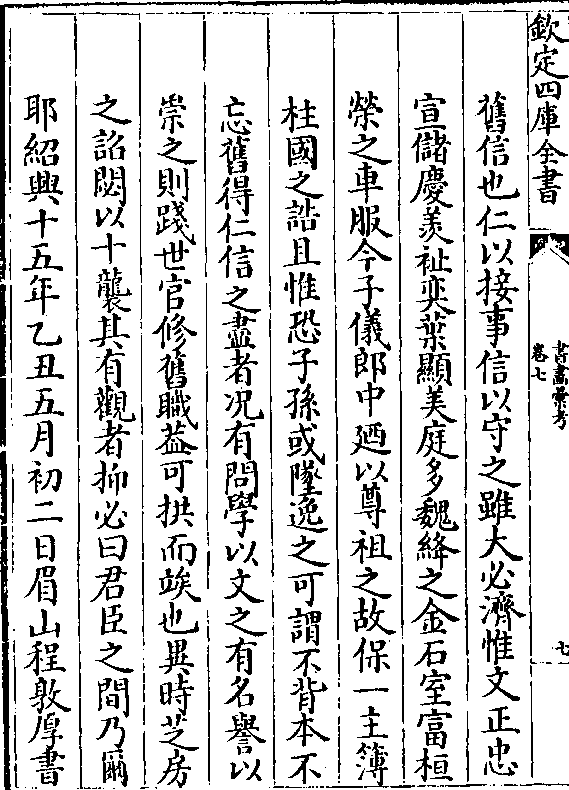 欽定四庫全書
書畫彙考
卷七
七
舊信也仁以接事信以守之雖大必濟惟文正忠
宣儲慶羙祉奕葉顯美庭多魏絳之金石室富桓
榮之車服今子儀郎中廼以尊祖之故保一主簿
柱國之誥且惟恐子孫或墜逸之可謂不背本不
忘舊得仁信之盡者况有問學以文之有名譽以
崇之則踐世官修舊職葢可拱而竢也異時芝房
之詔閟以十襲其有觀者抑必曰君臣之間乃爾
耶紹興十五年乙丑五月初二日眉山程敦厚書